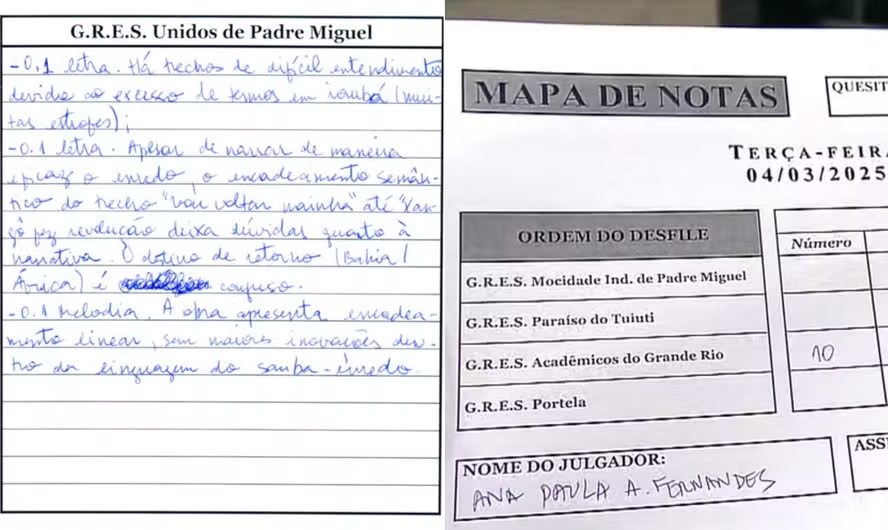 G.R.E.S. Unidos de Padre Miguel
-0.1 letra. Há trechos de difícil entendimento
devido ao excesso de termos em iorubá (mui-
tas estrofes);
-0.1 letra. Apesar de narrar de maneira
eficaz o enredo, o encadeamento semân-
tico do trecho "vou voltar mainha" até "Xan-
gô fez revolução deixa dúvidas quanto à
narrativa. O destino de retorno (Bahia/
África) é confuso.
-0.1 Melodia. A obra apresenta encadea-
mento linear, sem maiores inovações den-
tro da linguagem do samba-enredo
MAPA DE NOTAS
QUESIT
TERÇA-FEIRA
04/03/2025
ORDEM DO DESFILE
Número
G.R.E.S. Mocidade Ind. de Padre Miguel
G.R.E.S. Paraíso do Tuiuti
G.R.E.S. Acadêmicos do Grande Rio
10
G.R.E.S. Portela
NOME DO JULGADOR:
ANA PAULA A. FERNANDES
ASS